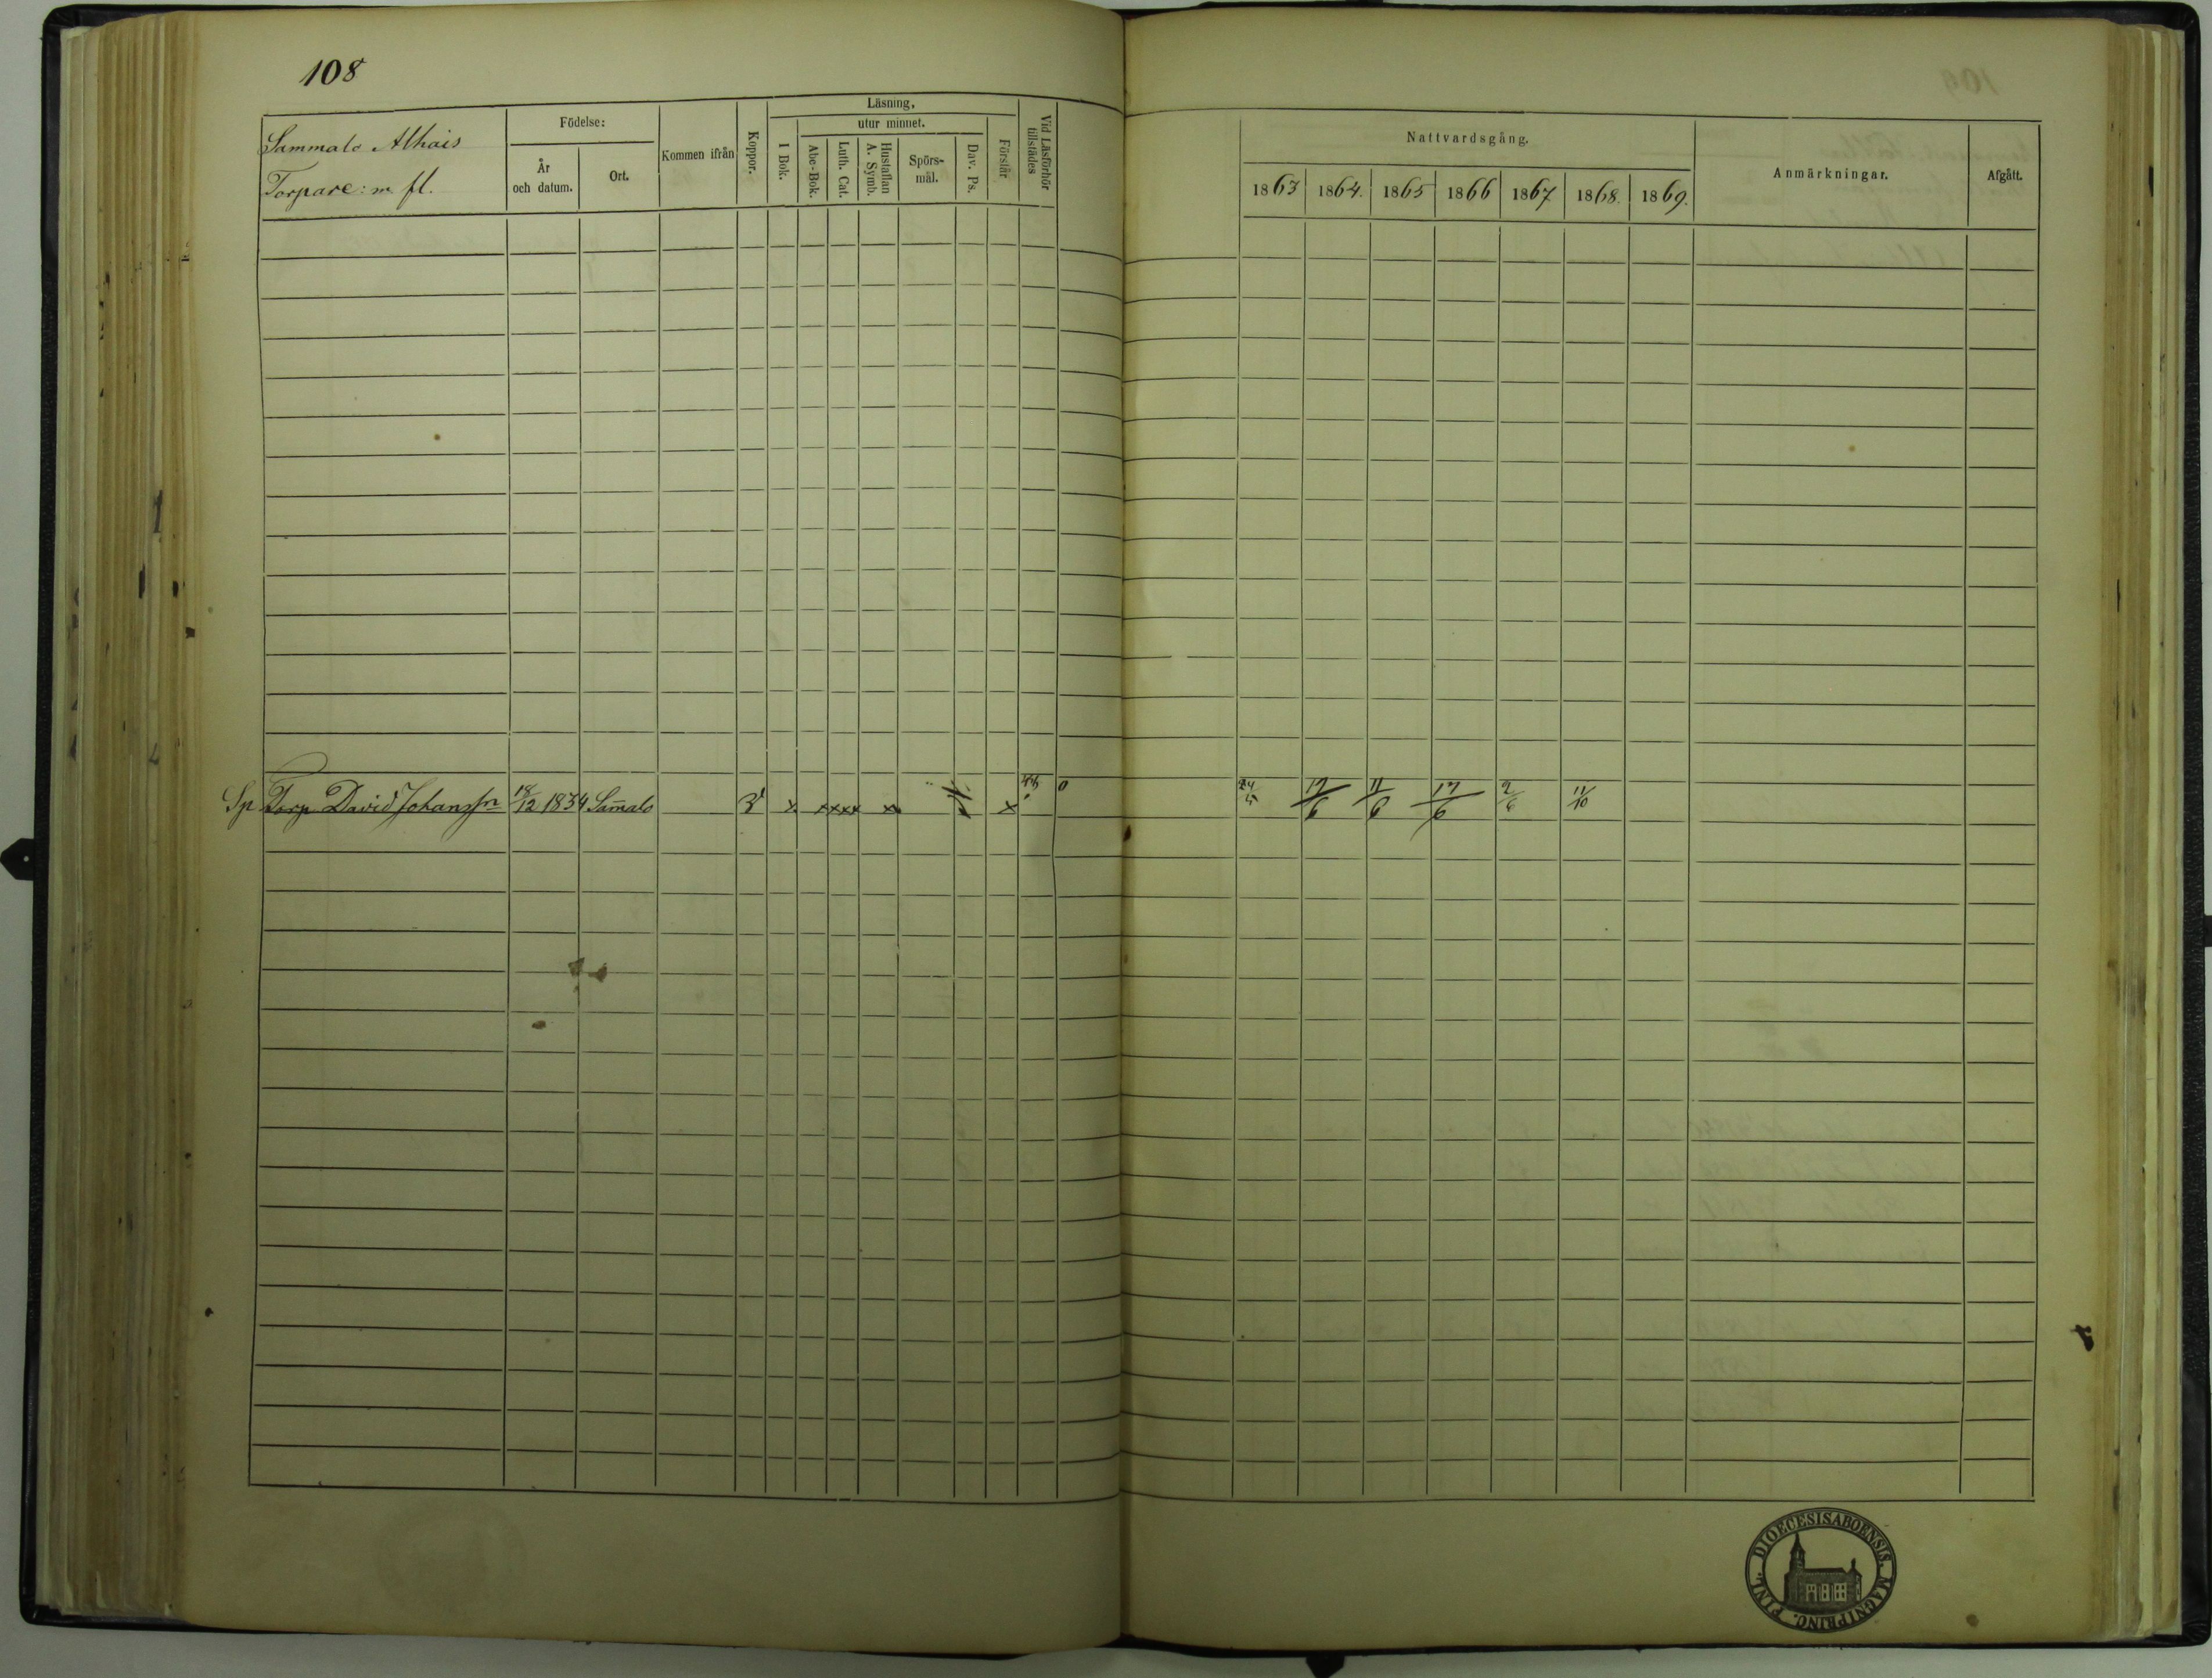 108
Sammalo Alhais
Torpare: m fl.
Födelse:
År och datum.
Ort.
Kommen ifrån
Koppor.
Läsning,
I Bok.
utur minnet.
Abc-Bok.
Luth. Cat.
Hustaflan A. Symb.
Spörs-mål.
Dav. Ps.
Förstår
Vid Läsförhör tillstädes
Nattvardsgång.
1863 1864. 1865 1866 1867 1868. 1869.
Anmärkningar.
Afgått.
Sp Torp David Johansson 18/12 1834 Samalo 3 x xxxx x x 0 24/5 17/6 11/6 17/6 2/6 11/10
DIOECESIS ABOENSIS. MAGNI PRINC. FINL.